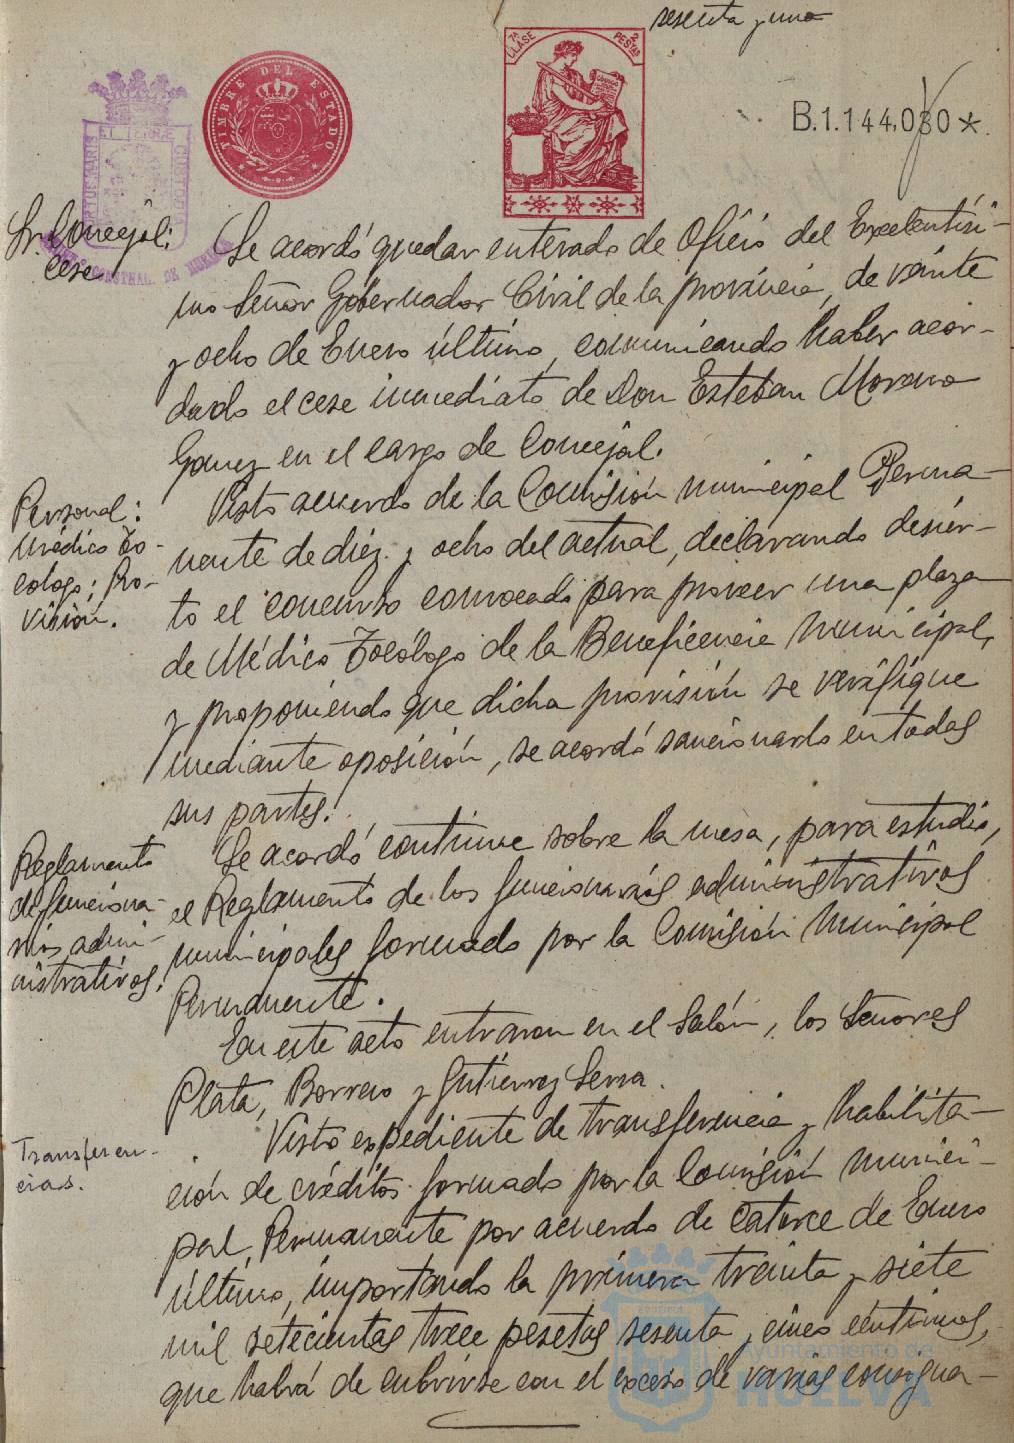 sesenta y uno
7ª CLASE 2 PESTAS
TIMBRE DEL ESTADO
B.1.144.030*
PORTUS MARIS ET TERRE CUSTODIA
Sr. Concejal:
cese
Se acordó quedar enterado de Oficio del Excelentísi-
mo Señor Gobernador Civil de la provincia, de veinte
y ocho de Enero último, comunicando haber acor-
dado el cese inmediato de Don Esteban Moreno
Gomez en el cargo de Concejal.
Personal:
Médico To-
cologo; Pro-
visión.
Visto acuerdo de la Comisión municipal Perma-
nente de diez y ocho del actual, declarando desier-
to el concurso convocado para proveer una plaza
de Médico Tocólogo de la Beneficencia Municipal,
y proponiendo que dicha provisión se verifique
mediante oposición, se acordó sancionarlo en todas
sus partes.
Reglamento
de funciona-
rios admi-
nistrativos.
Se acordó continue sobre la mesa, para estudio,
el Reglamento de los funcionarios administrativos
municipales formado por la Comisión Municipal
Permanente.
En este acto entraron en el Salón, los Señores
Plata, Borrero y Gutierrez Serra.
Transferen-
cias.
Visto expediente de transferencia y habilita-
ción de créditos formado por la Comisión munici-
pal Permanente por acuerdo de catorce de Enero
último, importando la primera treinta y siete
mil setecientas trece pesetas sesenta y cinco céntimos,
que habrá de cubrirse con el exceso de varias consigna-
Ayuntamiento de
HUELVA